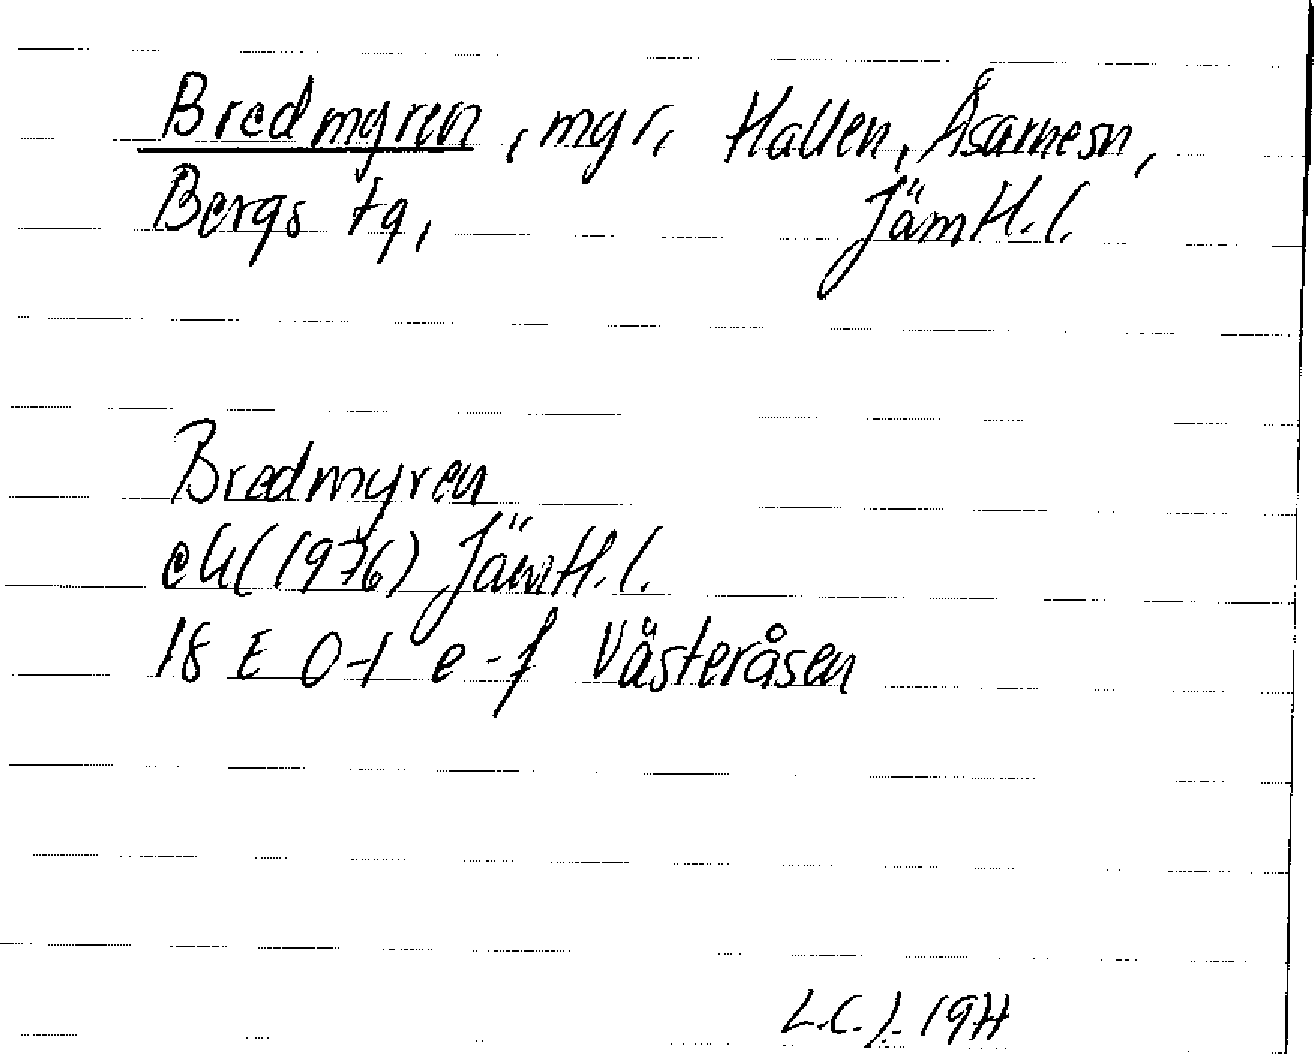 Bredmyren, myr, Hallen, Åsarnesn,
Bergs tg, Jämtl.l.
Bredmyren
ek (1976) Jämtl.l.
18 E 0-1 e-f Västeråsen
L.C.J. 1977